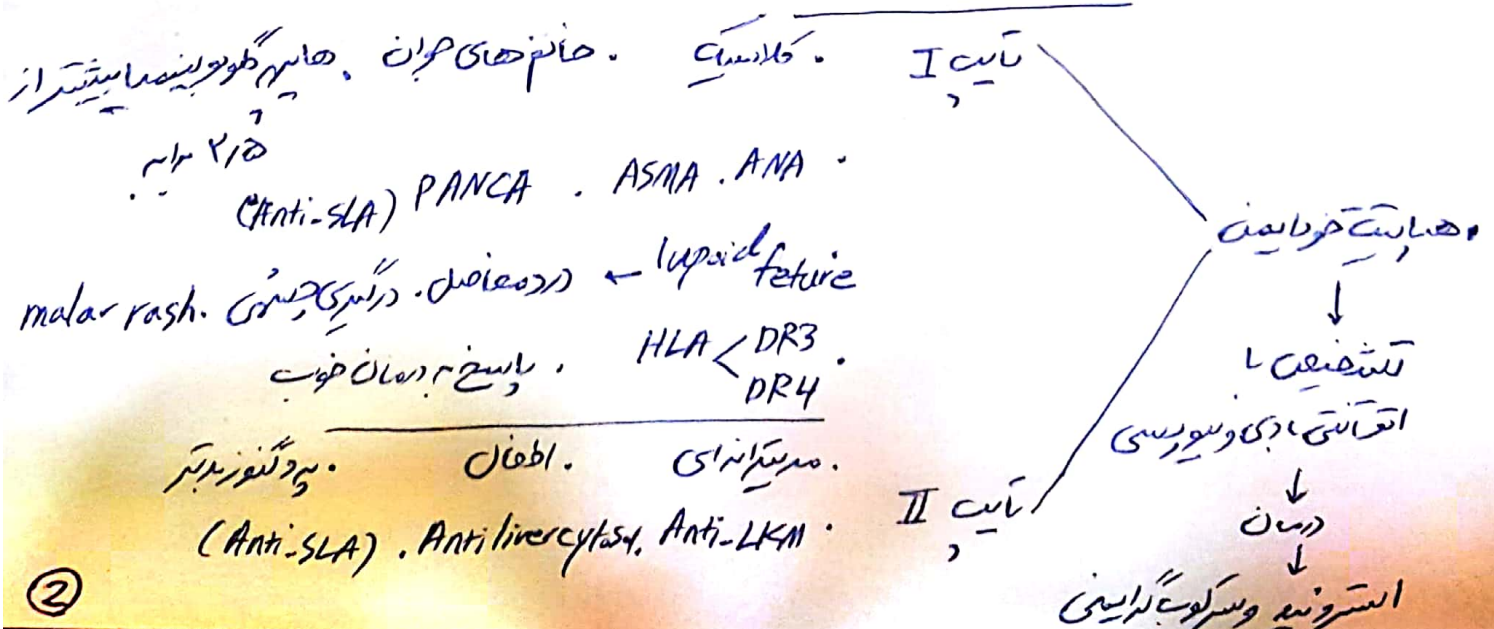 هپاتیت خودایمن
↓
تشخیص با
اتوآنتی بادی و بیوپسی
↓
درمان
↓
استروئید و سرکوب گر ایمنی
تایپ I
. کلاسیک . خانم های جوان . هایپرگلوبولینمیا بیشتر از
۲/۵ برابر
. ANA . ASMA . PANCA (Anti-SLA)
lupoid feture ← درد مفاصل . درگیری چشمی . malar rash
. HLA < DR3 DR4 . پاسخ به درمان خوب
تایپ II
. مدیترانه ای . اطفال . پروگنوز بدتر
. Anti-LKM . Anti liver cytosol . (Anti-SLA)
2